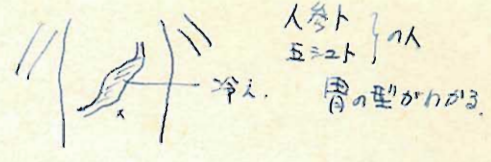 人参ト
五シュト
の人
冷え.
胃の型がわかる.